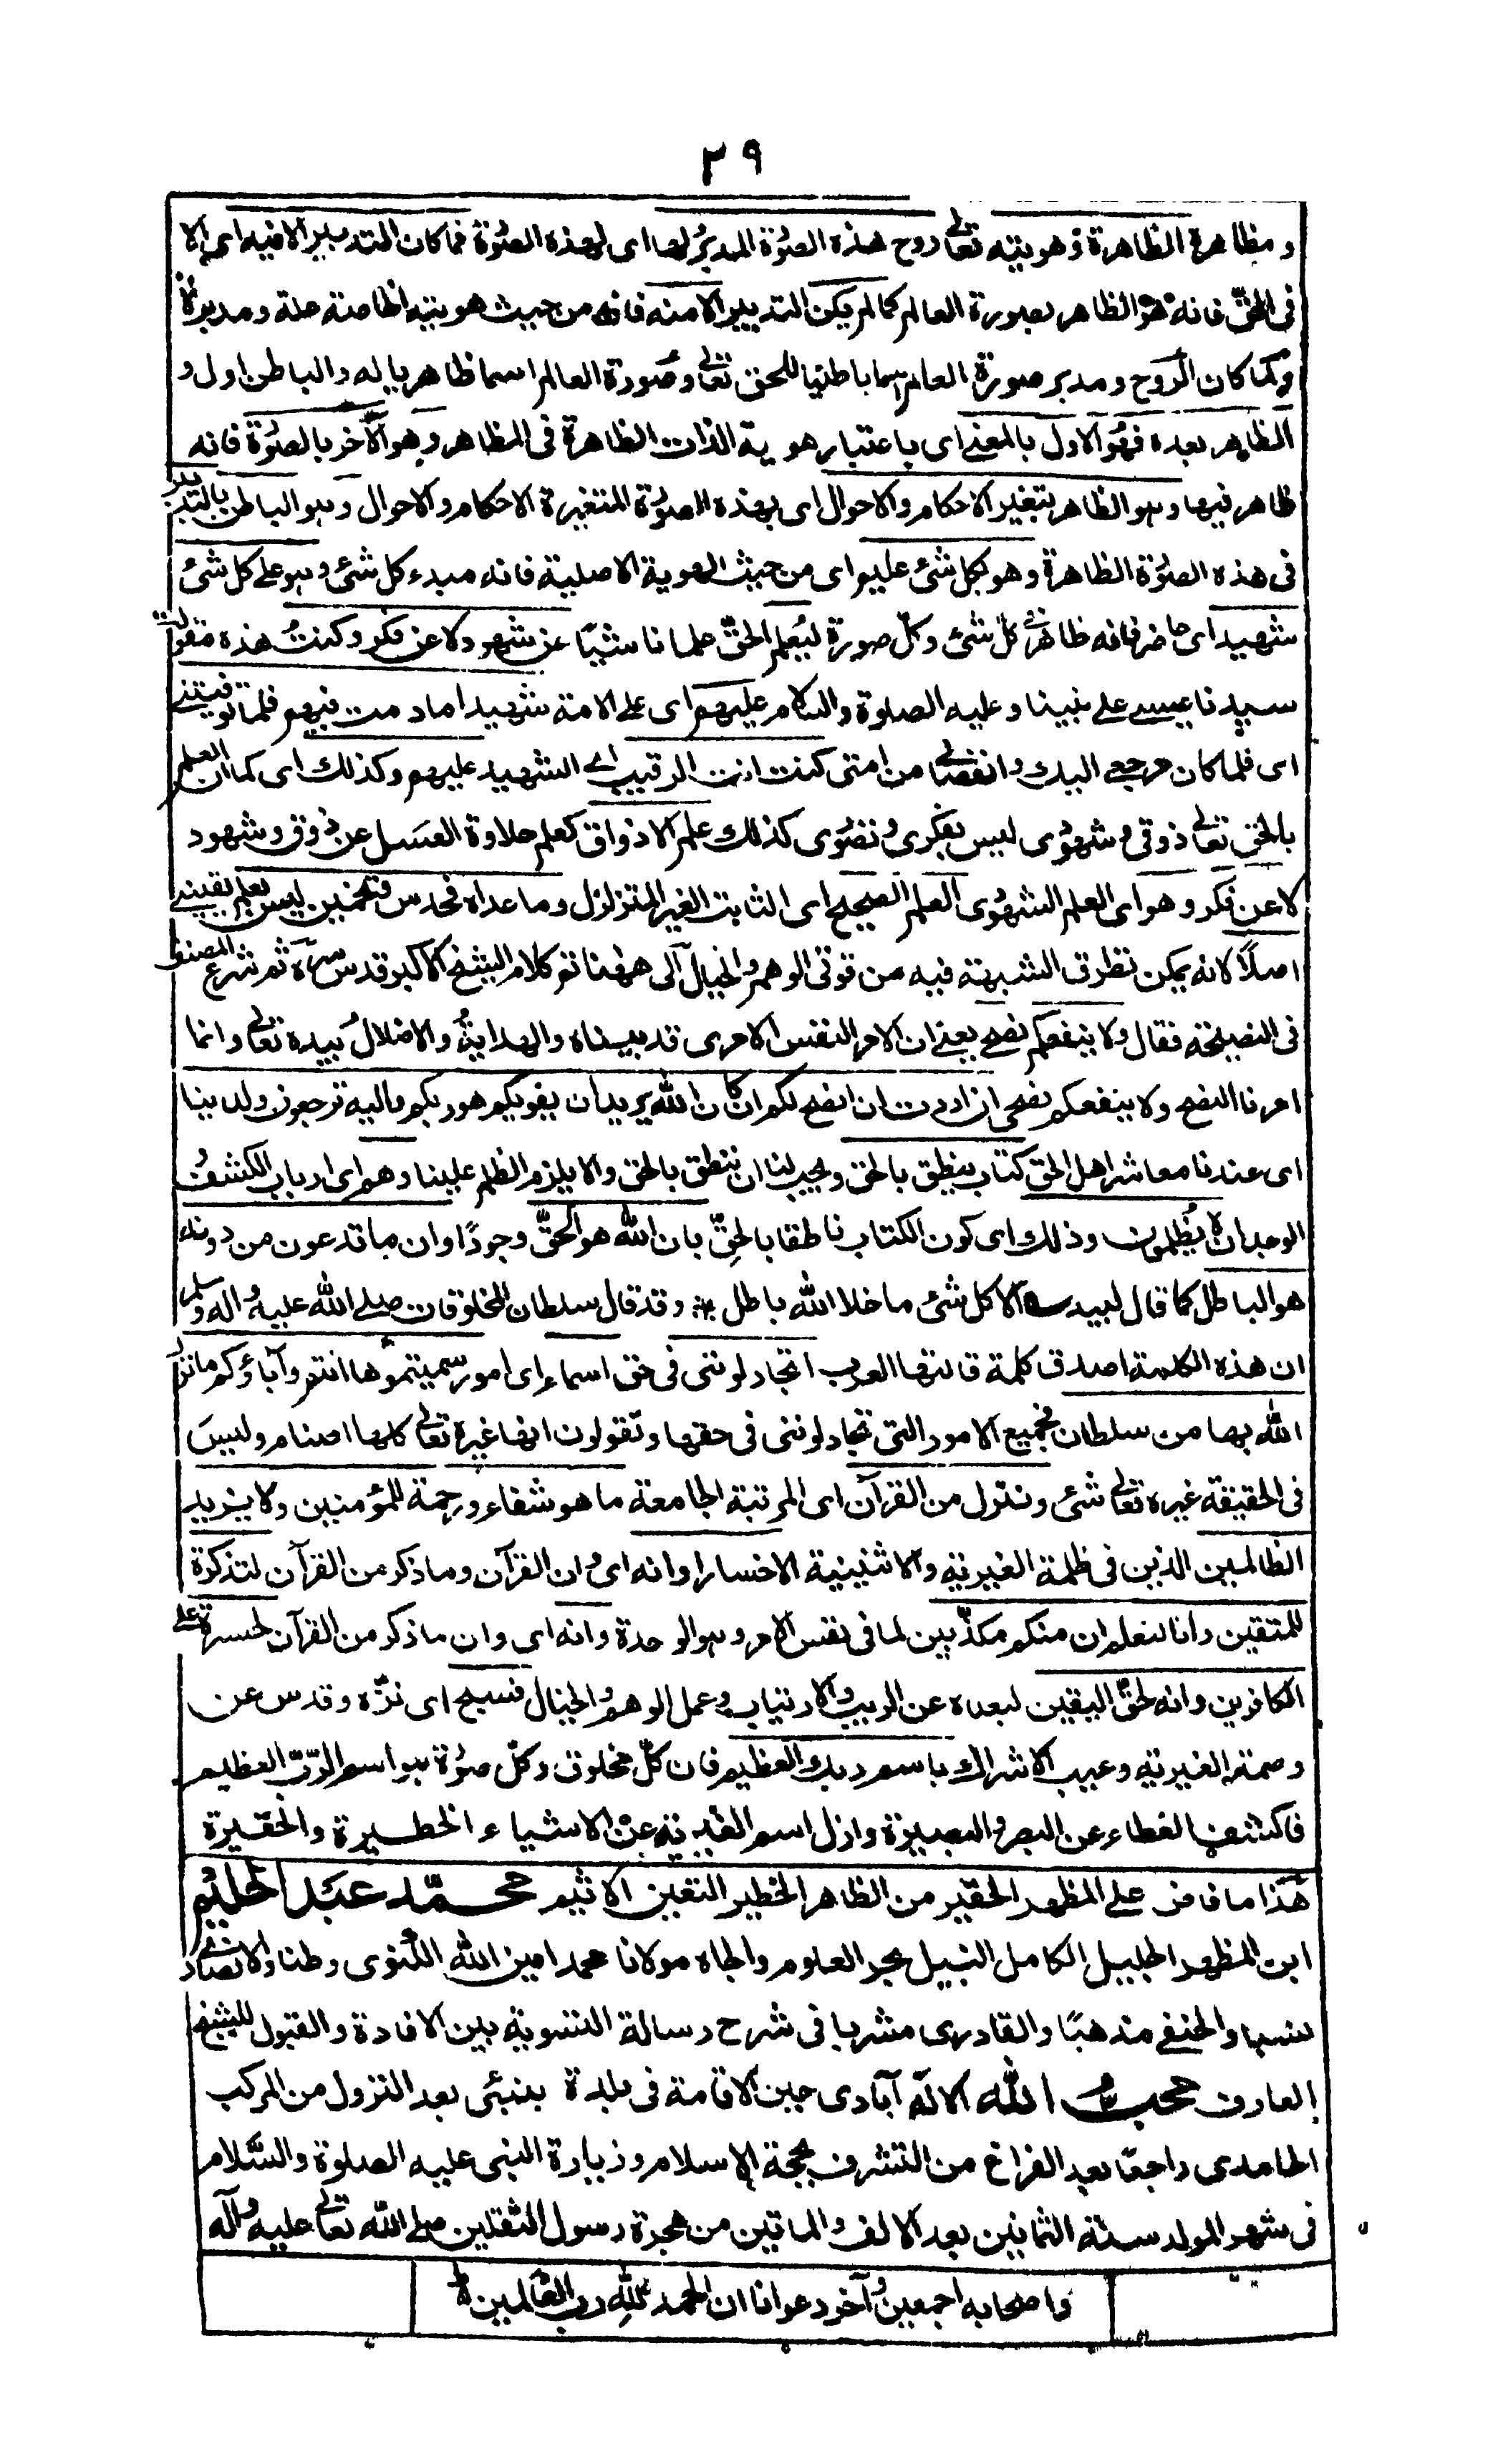 ٢٩
و مظاهره الظاهرة و هويته تعالى روح هذه الصورة المدبر لها اى لهذه الصورة فما كان التدبير الا فيه اى الا
فى الحق فانه هو الظاهر بصورة العالم كما لم يكن التدبير الا منه فانه من حيث هويته الظاهرة علة و مدبرة
و لما كان الروح و مدبر صورة العالم اسما باطنيا للحق تعالى و صورة العالم اسما ظاهريا له و الباطن اول و
الظاهر بعده فهو الاول بالمعنى اى باعتبار هوية الذات الظاهرة فى المظاهر و هو الآخر بالصورة فانه
ظاهر فيها و هو الظاهر بتغير الاحكام و الاحوال اى بهذه الصورة المتغيرة الاحكام و الاحوال و هو الباطن بالتدبير
فى هذه الصورة الظاهرة و هو بكل شئ عليم اى من حيث الهوية الاصلية فانه مبدء كل شئ و هو على كل شئ
شهيد اى حاضر فانه ظاهر فى كل شئ و كل صورة ليعلم الحق علما ناشيا عن شهود لا عن فكر و كنت هذه مقولة
سيدنا عيسى على نبينا و عليه الصلوة و السلام عليهم اى على الامة شهيدا ما دمت فيهم فلما توفيتنى
اى فلما كان مرجعى اليك و انفصالى من امتى كنت انت الرقيب اے الشهيد عليهم و كذلك اى كما ان العلم
بالحق تعالى ذوقى و شهودى ليس بفكرى و تصورى كذلك علم الاذواق كعلم حلاوة العسل عن ذوق و شهود
لا عن فكر و هو اى العلم الشهودى العلم الصحيح اى الثابت الغير المتزلزل و ما عداه فحدس و تخمين ليس بعلم يقينى
اصلاً لانه يمكن تطرق الشبهة فيه من قوتى الوهم و الخيال الى ههنا تم كلام الشيخ الاكبر قدس سره ثم شرع المصنف
فى النصيحة فقال و لا ينفعكم نصحى يعنى ان الامر النفس الامرى قد بيناه و الهداية و الاضلال بيده تعالى و انما
امرنا النصح و لا ينفعكم نصحى ان اردت ان انصح لكم ان كان الله يريد ان يغويكم هو ربكم و اليه ترجعون و لدينا
اى عندنا معاشر اهل الحق كتاب ينطق بالحق و يجب لنا ان ننطق بالحق و الا يلزم الظلم علينا و هم اى ارباب الكشف و
الوجدان لا يظلمون و ذلك اى كون الكتاب ناطقا بالحق بان الله هو الحق وجودًا و ان ما تدعون من دونه
هو الباطل كما قال لبيد الا كل شئ ما خلا الله باطل و قد قال سلطان المخلوقات صلى الله عليه و اله و سلم
ان هذه الكلمة اصدق كلمة قالتها العرب اتجادلوننى فى حق اسماء اى امور سميتموها انتم و آباؤكم ما نزل
الله بها من سلطان فجميع الامور التى تجادلوننى فى حقها و تقولون انها غيره تعالى كلها اصنام و ليس
فى الحقيقة غيره تعالى شئ و ننزل من القرآن اى المرتبة الجامعة ما هو شفاء و رحمة للمؤمنين و لا يزيد
الظالمين الذين فى ظلمة الغيرية و الاثنينية الا خسارا و انه اى ان القرآن و ما ذكر من القرآن لتذكرة
للمتقين و انا لنعلم ان منكم مكذبين لما فى نفس الامر و هو الوحدة و انه اى و ان ما ذكر من القرآن لحسرة على
الكافرين و انه لحق اليقين لبعده عن الريب و الارتياب و عمل الوهم و الخيال فسبح اى نزه و قدس عن
وصمة الغيرية و عيب الاشراك باسم ربك العظيم فان كل مخلوق و كل صورة هو اسم الرب العظيم
فاكشف الغطاء عن البصر و البصيرة و ازل اسم الغيرية عن الاشياء الخطيرة و الحقيرة
هذا ما فاض على المظهر الحقير من الظاهر الخطير التعين الاثيم محمد عبد الحليم
ابن المظهر الجليل الكامل النبيل بحر العلوم و الجاه مولانا محمد امين الله اللكنوى وطنا و الانصارى
نسبا و الحنفى مذهبًا و القادرى مشربا فى شرح رسالة التسوية بين الافادة و القبول للشيخ
العارف محب الله الاله آبادى حين الاقامة فى بلدة بنبئى بعد النزول من المركب
الحامدى راجعًا بعد الفراغ من التشرف بحجة الاسلام و زيارة النبى عليه الصلوة و السلام
فى شهر المولد سنة الثمانين بعد الالف و الماتين من هجرة رسول الثقلين صلى الله تعالى عليه و آله
و اصحابه اجمعين و آخر دعوانا ان الحمد لله رب العالمين